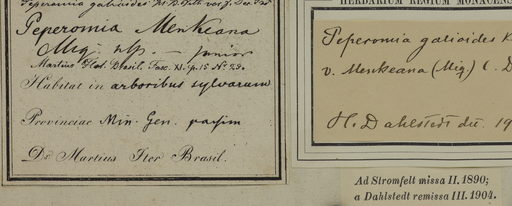 Peperomia galioides
Peperomia Menkeana
Miq. nsp. — junior
Martius Hb. Brasil. Fasc. XI. p. 15 Nr. 23.
Habitat in arboribus sylvarum
Provinciae Min. Gen. passim
Dr. Martius Iter Brasil.
HERBARIUM REGIUM MONACENS
Peperomia galioides K
v. Menkeana (Miq.) C. D
H. Dahlstedt det. 19
Ad Stromfelt missa II. 1890;
a Dahlstedt remissa III. 1904.